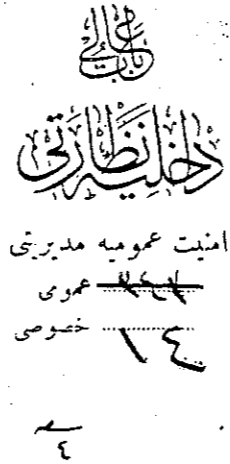 باب عالی
داخلیه نظارتی
امنیت عمومیه مدیریتی
عمومی
خصوصی ١٤
٤